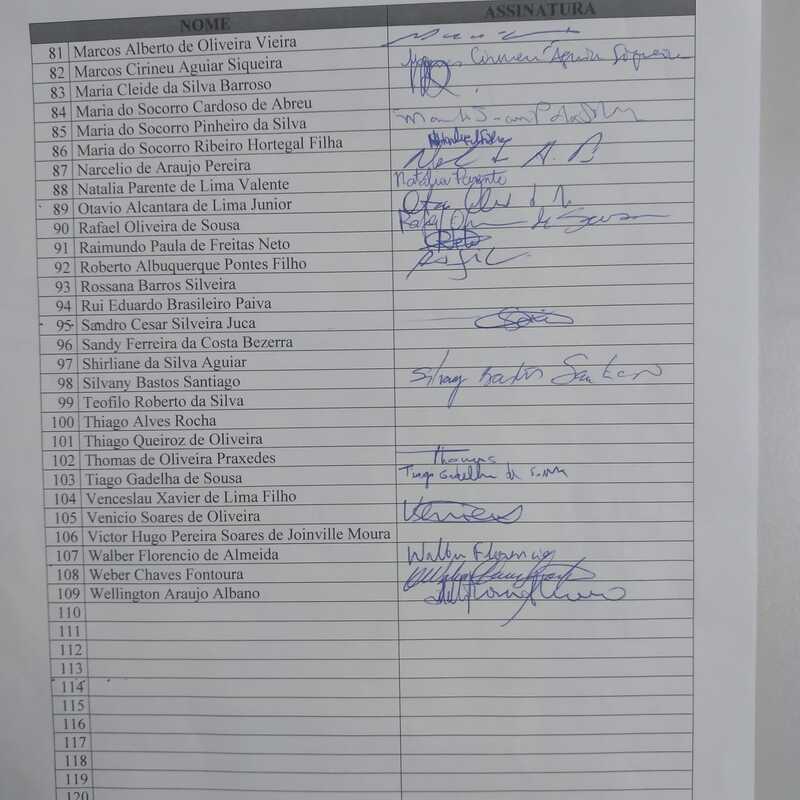 NOME ASSINATURA
81 Marcos Alberto de Oliveira Vieira
82 Marcos Cirineu Aguiar Siqueira Marcos Cirineu Aguiar Siqueira
83 Maria Cleide da Silva Barroso
84 Maria do Socorro Cardoso de Abreu
85 Maria do Socorro Pinheiro da Silva
86 Maria do Socorro Ribeiro Hortegal Filha
87 Narcelio de Araujo Pereira
88 Natalia Parente de Lima Valente Natália Parente
89 Otavio Alcantara de Lima Junior
90 Rafael Oliveira de Sousa Rafael
91 Raimundo Paula de Freitas Neto Neto
92 Roberto Albuquerque Pontes Filho
93 Rossana Barros Silveira
94 Rui Eduardo Brasileiro Paiva
95 Sandro Cesar Silveira Juca
96 Sandy Ferreira da Costa Bezerra
97 Shirliane da Silva Aguiar
98 Silvany Bastos Santiago Silvany Bastos Santiago
99 Teofilo Roberto da Silva
100 Thiago Alves Rocha
101 Thiago Queiroz de Oliveira
102 Thomas de Oliveira Praxedes Thomas
103 Tiago Gadelha de Sousa Tiago Gadelha de Sousa
104 Venceslau Xavier de Lima Filho
105 Venicio Soares de Oliveira Venicio
106 Victor Hugo Pereira Soares de Joinville Moura
107 Walber Florencio de Almeida Walber Florencio
108 Weber Chaves Fontoura
109 Wellington Araujo Albano
110
111
112
113
114
115
116
117
118
119
120